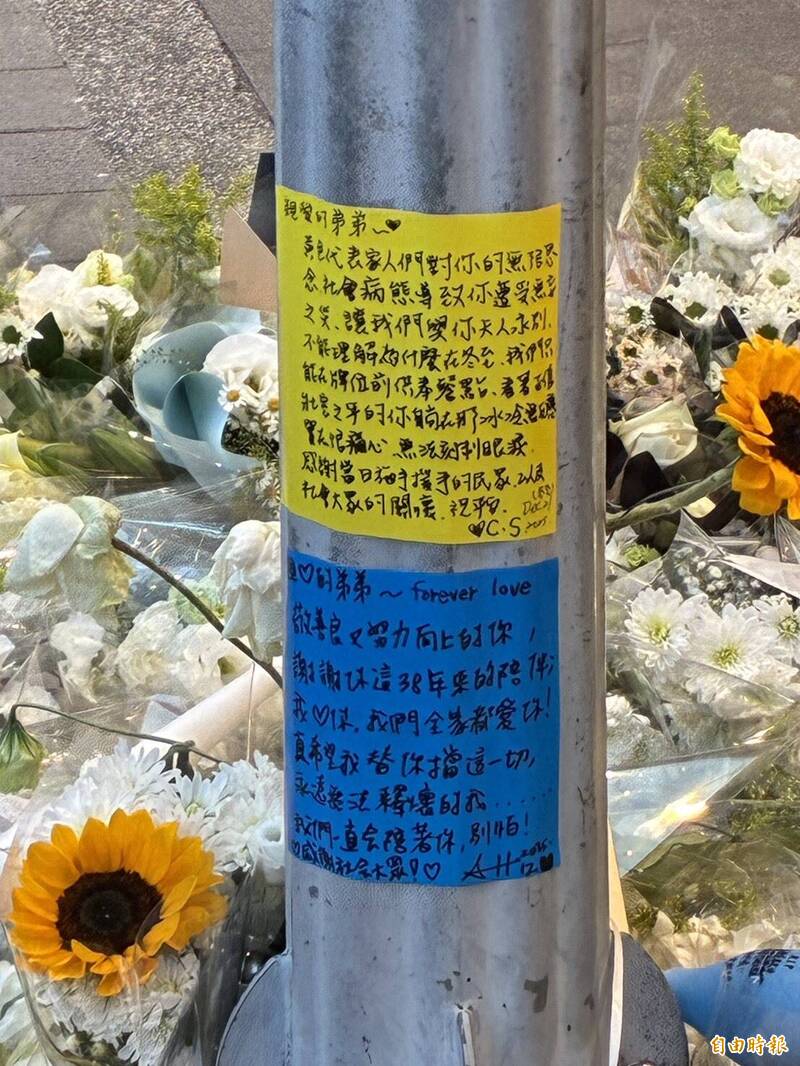 親愛的弟弟～♥
黃色代表家人們對你的無限思
念、社會病態導致你遭受無妄
之災、讓我們與你天人永別、
不能理解為什麼在冬至、我們只
能在牌位前供奉餐點、看著
壯之年的你躺在那冰冷
實在很痛心、無法到眼淚、
感謝當日抽手援手的民眾、以及
社會大眾的關懷、祝平安。
♥C.S. 2025
♡的弟弟～forever love
善良又努力向上的你，
謝謝你這38年來的陪伴，
我♡你，我們全家都愛你！
真希望我替你擋這一切，
永遠無法釋懷的我......
我們一直會陪著你，別怕！
♡感謝社會大眾！♡ AH 2025. 12.
自由時報